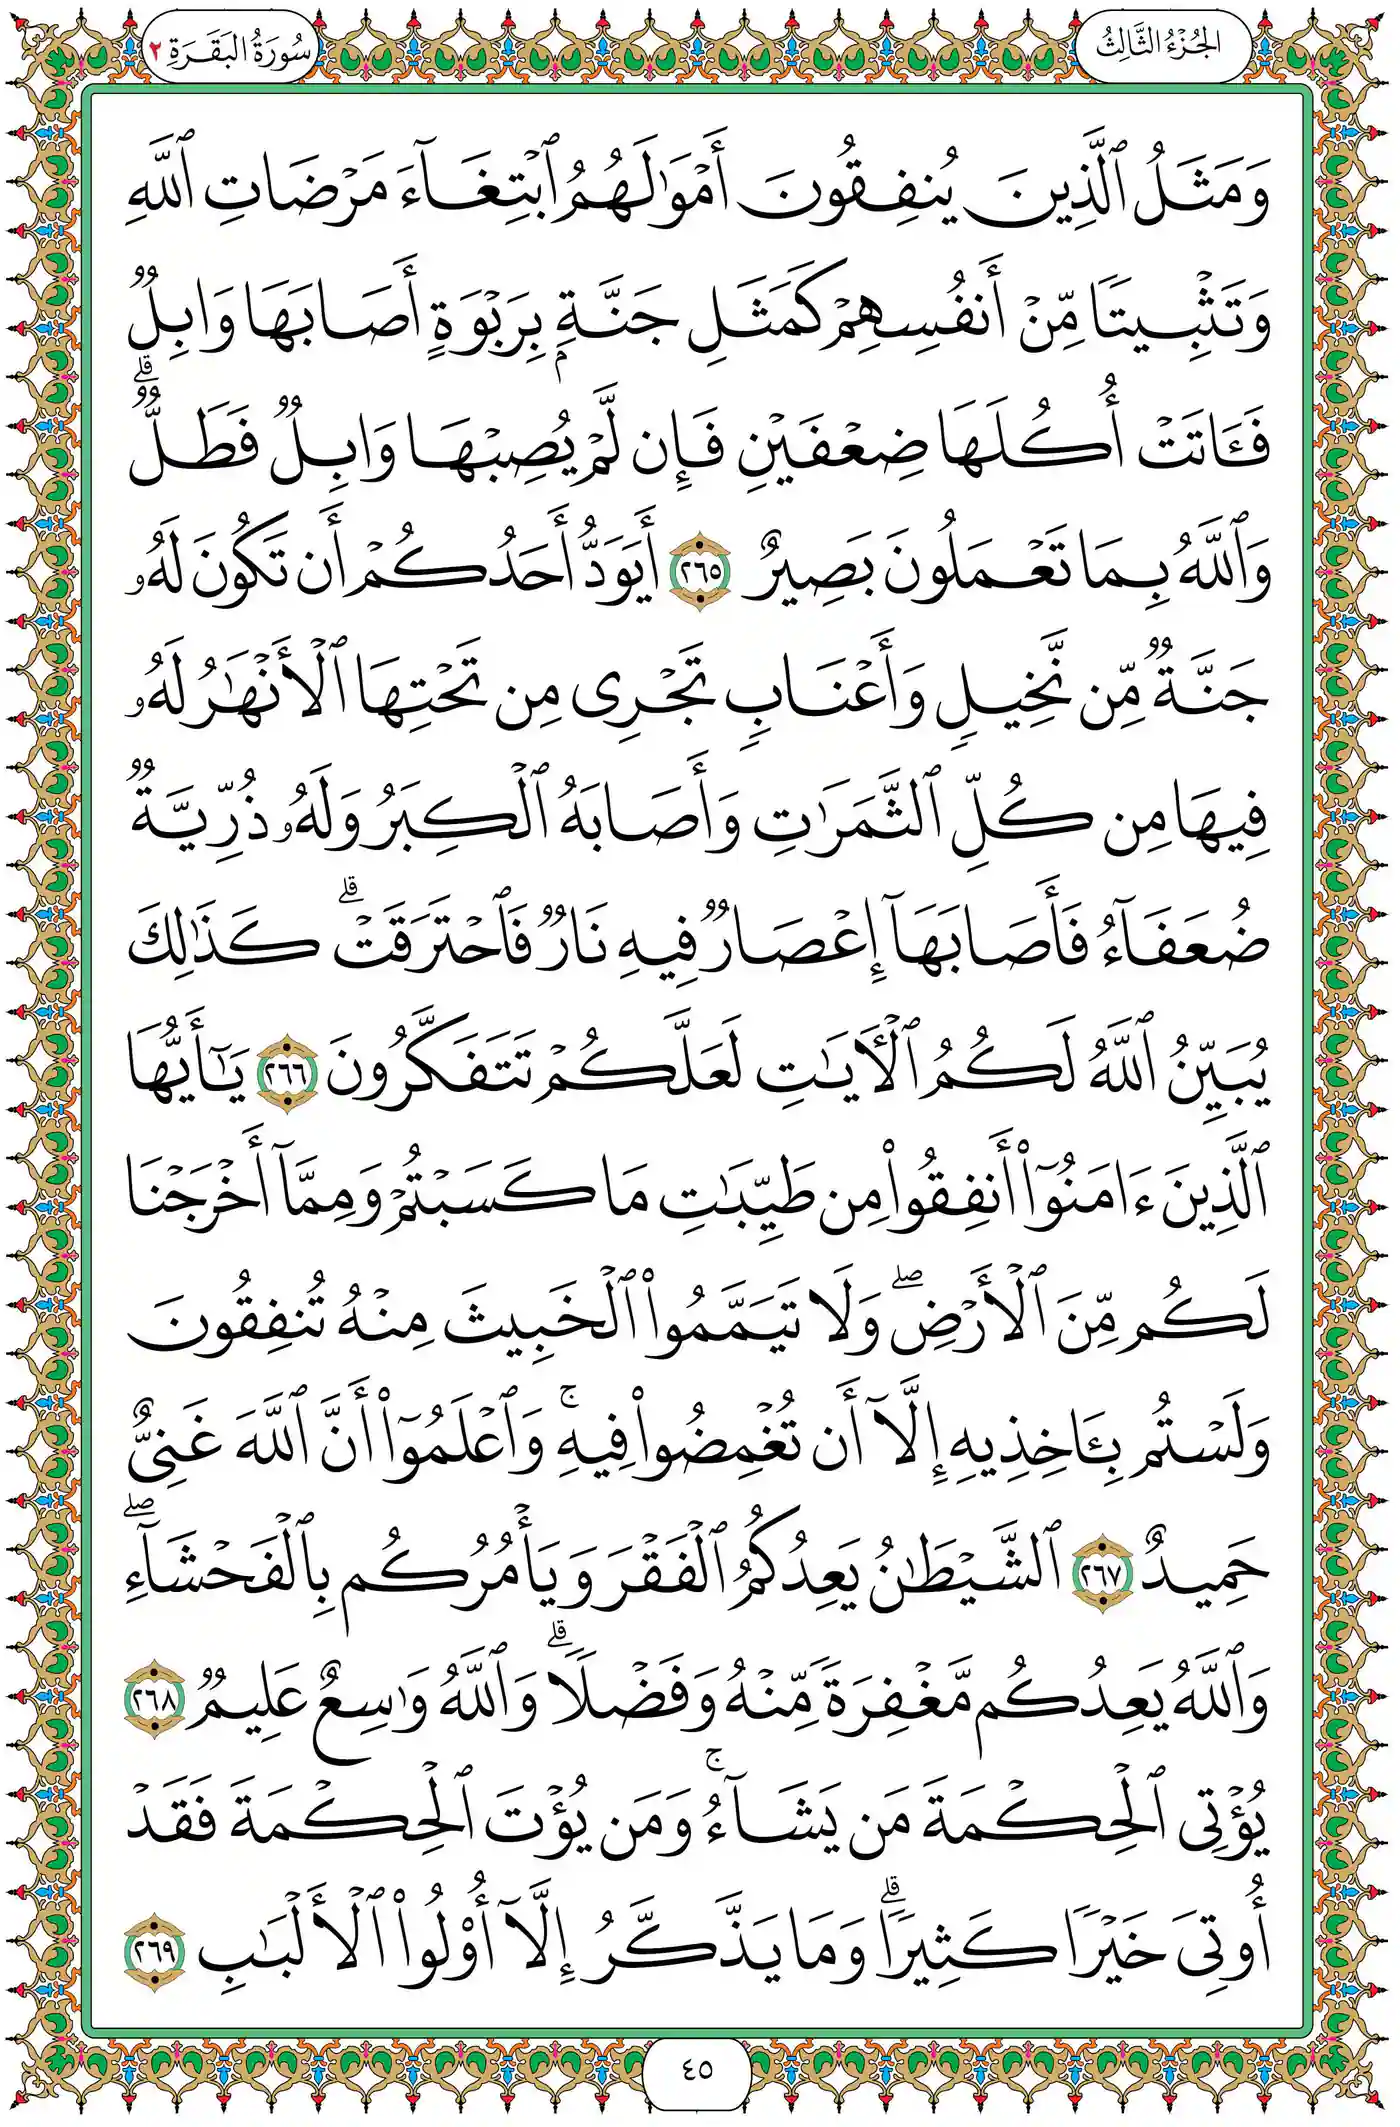 الجُزْءُ الثَّالِثُ
سُورَةُ البَقَرَةِ ٢
وَمَثَلُ ٱلَّذِينَ يُنفِقُونَ أَمْوَٰلَهُمُ ٱبْتِغَآءَ مَرْضَاتِ ٱللَّهِ
وَتَثْبِيتًا مِّنْ أَنفُسِهِمْ كَمَثَلِ جَنَّةٍۭ بِرَبْوَةٍ أَصَابَهَا وَابِلٌ
فَـَٔاتَتْ أُكُلَهَا ضِعْفَيْنِ فَإِن لَّمْ يُصِبْهَا وَابِلٌ فَطَلٌّ ۗ
وَٱللَّهُ بِمَا تَعْمَلُونَ بَصِيرٌ ٢٦٥ أَيَوَدُّ أَحَدُكُمْ أَن تَكُونَ لَهُۥ
جَنَّةٌ مِّن نَّخِيلٍ وَأَعْنَابٍ تَجْرِى مِن تَحْتِهَا ٱلْأَنْهَٰرُ لَهُۥ
فِيهَا مِن كُلِّ ٱلثَّمَرَٰتِ وَأَصَابَهُ ٱلْكِبَرُ وَلَهُۥ ذُرِّيَّةٌ
ضُعَفَآءُ فَأَصَابَهَآ إِعْصَارٌ فِيهِ نَارٌ فَٱحْتَرَقَتْ ۗ كَذَٰلِكَ
يُبَيِّنُ ٱللَّهُ لَكُمُ ٱلْـَٔايَٰتِ لَعَلَّكُمْ تَتَفَكَّرُونَ ٢٦٦ يَٰٓأَيُّهَا
ٱلَّذِينَ ءَامَنُوٓا۟ أَنفِقُوا۟ مِن طَيِّبَٰتِ مَا كَسَبْتُمْ وَمِمَّآ أَخْرَجْنَا
لَكُم مِّنَ ٱلْأَرْضِ ۖ وَلَا تَيَمَّمُوا۟ ٱلْخَبِيثَ مِنْهُ تُنفِقُونَ
وَلَسْتُم بِـَٔاخِذِيهِ إِلَّآ أَن تُغْمِضُوا۟ فِيهِ ۚ وَٱعْلَمُوٓا۟ أَنَّ ٱللَّهَ غَنِىٌّ
حَمِيدٌ ٢٦٧ ٱلشَّيْطَٰنُ يَعِدُكُمُ ٱلْفَقْرَ وَيَأْمُرُكُم بِٱلْفَحْشَآءِ ۖ
وَٱللَّهُ يَعِدُكُم مَّغْفِرَةً مِّنْهُ وَفَضْلًا ۗ وَٱللَّهُ وَٰسِعٌ عَلِيمٌ ٢٦٨
يُؤْتِى ٱلْحِكْمَةَ مَن يَشَآءُ ۚ وَمَن يُؤْتَ ٱلْحِكْمَةَ فَقَدْ
أُوتِىَ خَيْرًا كَثِيرًا ۗ وَمَا يَذَّكَّرُ إِلَّآ أُو۟لُوا۟ ٱلْأَلْبَٰبِ ٢٦٩
٤٥